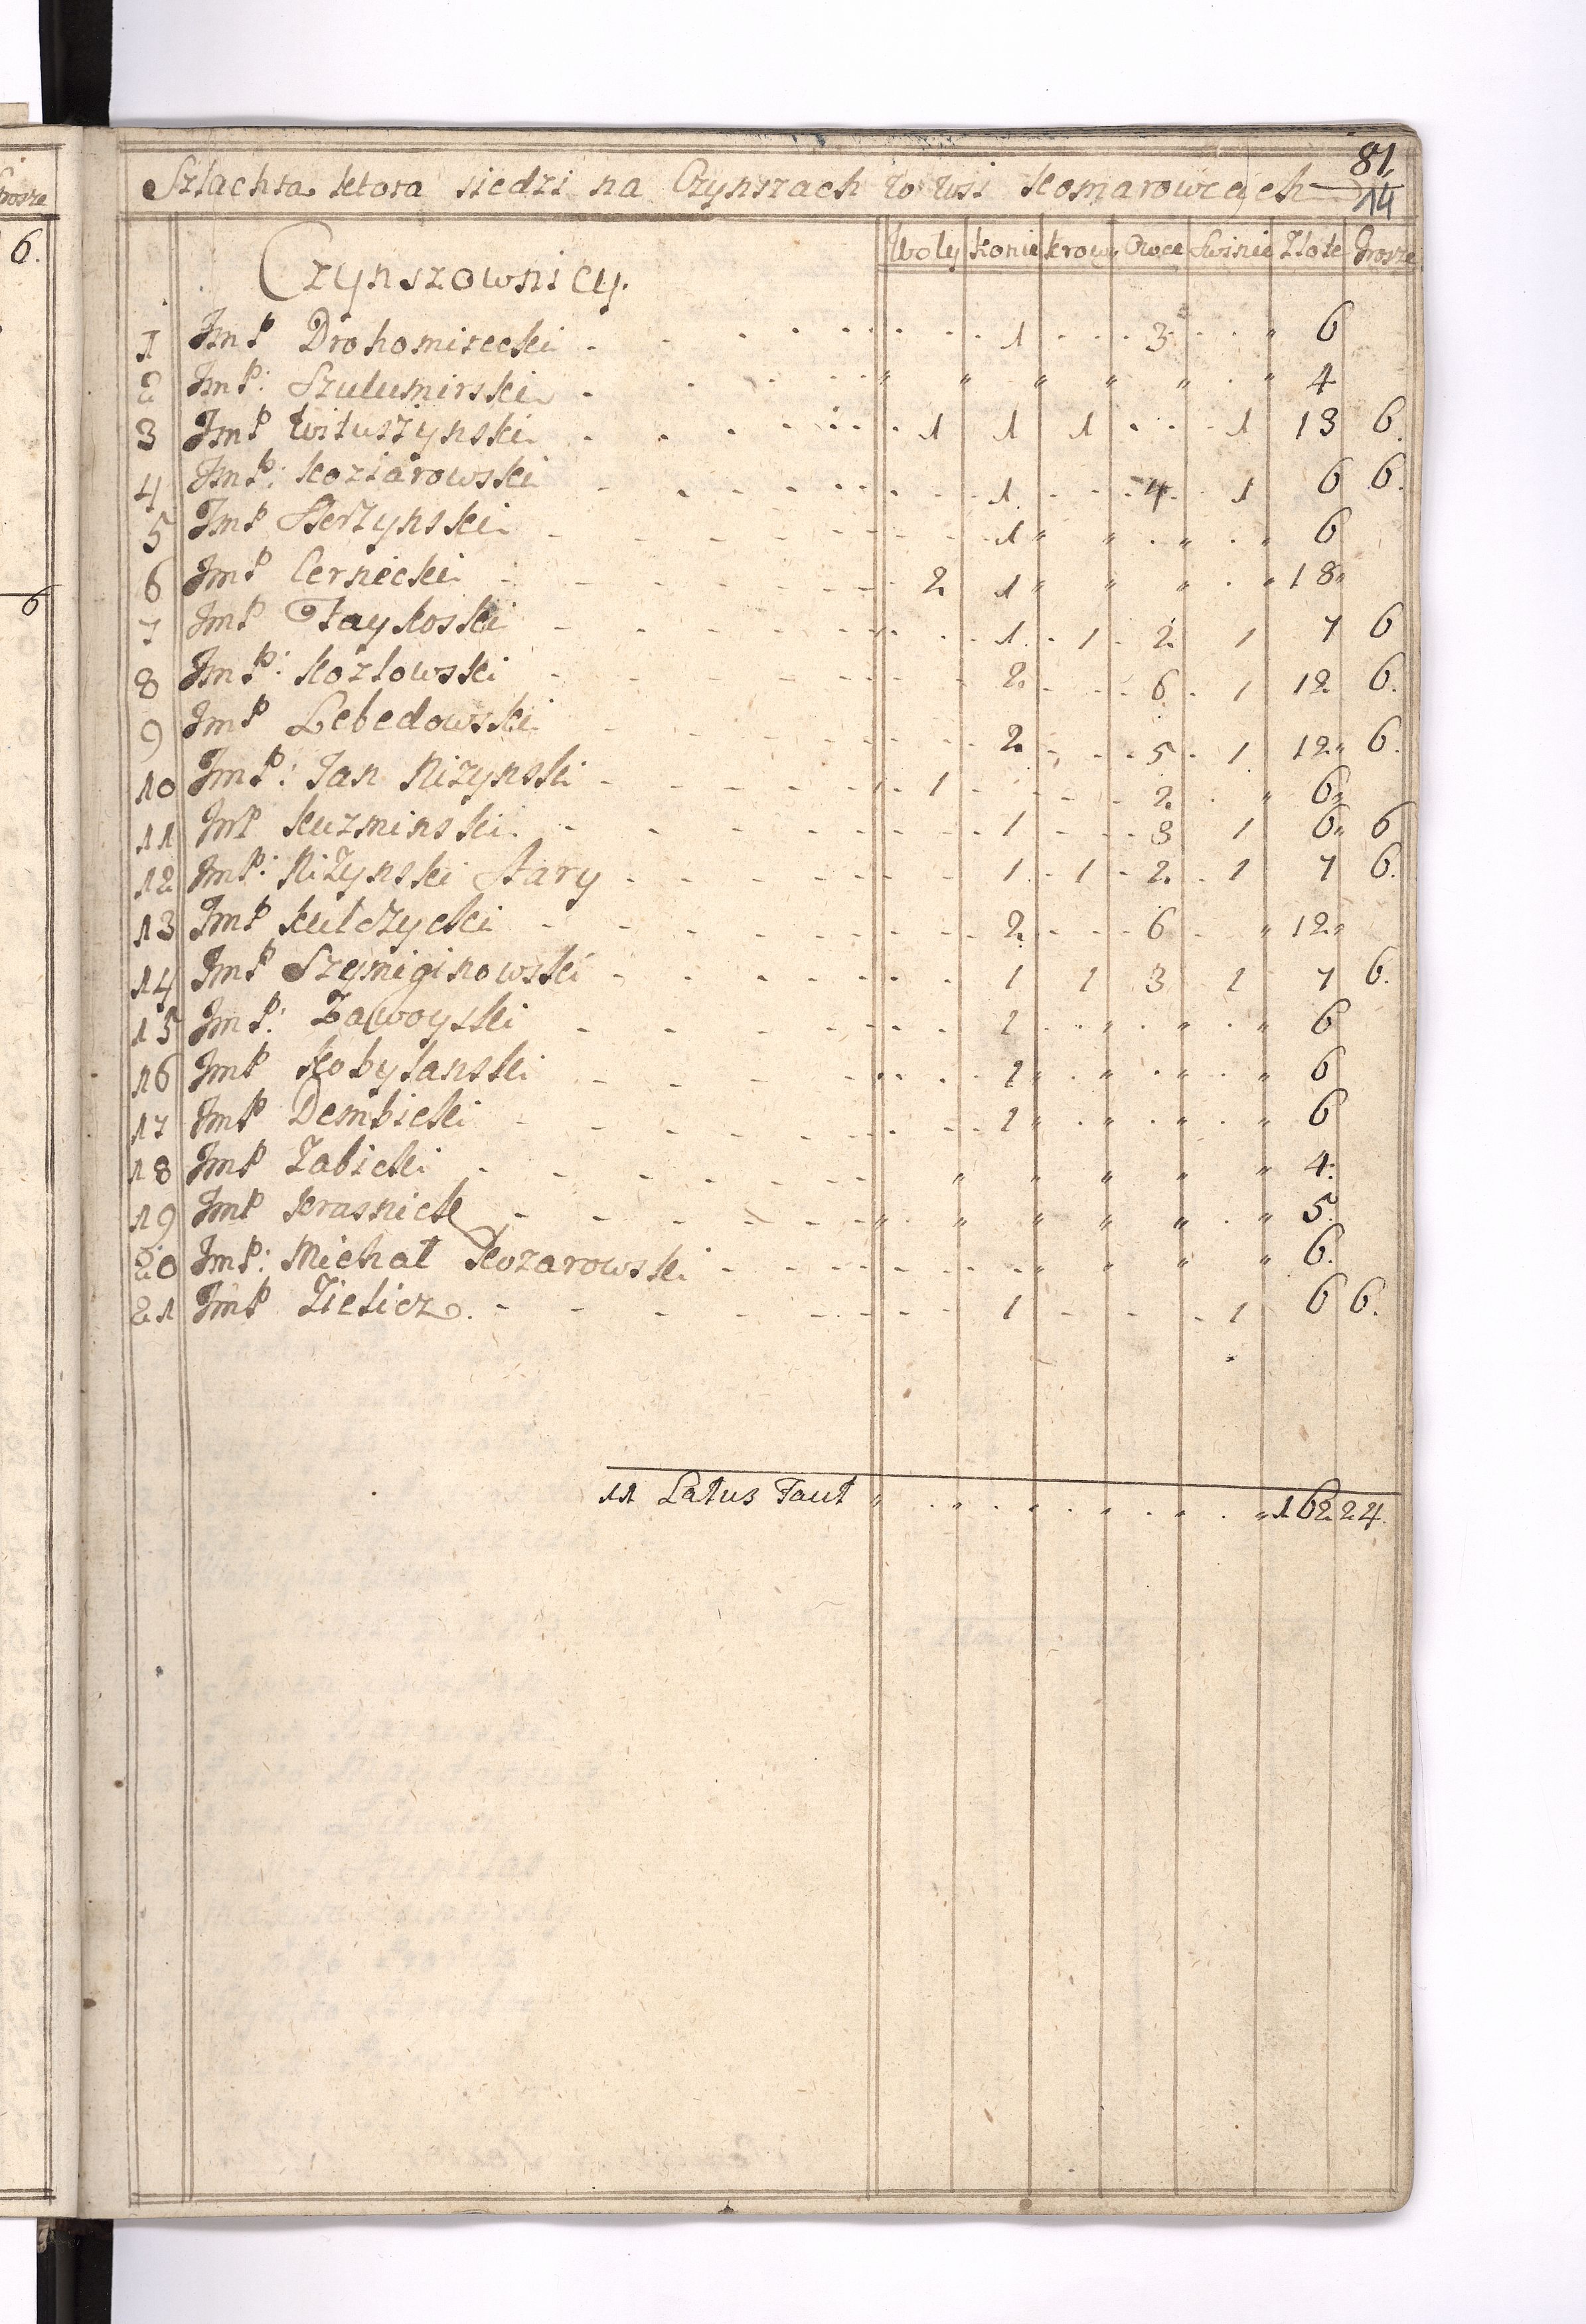 81.
Szlachta ktora siedzi na Czynszach w wsi Komarowcach
14
Woły Konie Krowy Owce Swinie Złote Grosze
Czynszownicy.
1 Jmp Drohomirecki 1 3 6
2 Jmp: Szulumirski 4
3 Jmp Wituszynski 1 1 1 1 13 6.
4 Jmp: Koziarowski 1 4 1 6 6.
5 Jmp Skerzynski 1 6
6 Jmp Cernecki 2 1 18
7 Jmp Haykoski 1 1 2 1 7 6
8 Jmp: Kozłowski 2 6 1 12 6.
9 Jmp Lebedowski 2 5 1 12 6.
10 Jmp: Jan Nizynski 1 2 6
11 Jmp Kuzminski 1 3 1 6 6
12 Jmp: Nizynski Stary 1 1 2 1 7 6.
13 Jmp Kulczycki 2 6 12
14 Jmp Szemiginowski 1 1 3 1 7 6.
15 Jmp: Zawoyski 1 6
16 Jmp Kobylanski 1 6
17 Jmp Dembicki 1 6
18 Jmp Zabicki 4
19 Jmp Krasnick 5
20 Jmp: Michał Kozarowski 6.
21 Jmp Zielicz 1 1 6 6.
11 Latus Faut 162 24.
Grosze
6.
6